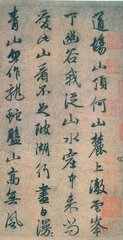 道場山頂何山麓上澈雲峯
下幽谷我從山水窟中来尚
愛此山看不足陂湖行盡白漫
青山忽作龍蛇盤山高無風